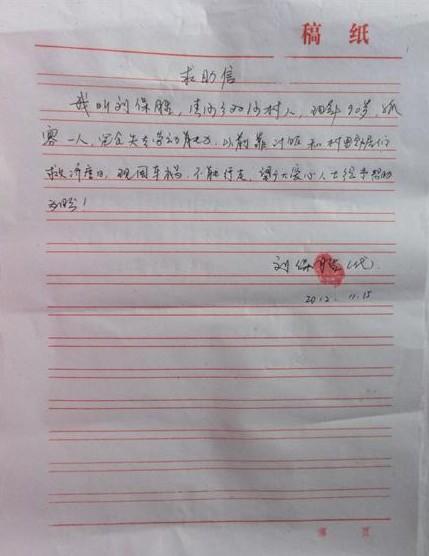 稿 纸
求助信
我叫刘保胜，清河乡双河村人，现年90岁，孤
寡一人，完全失去劳动能力，以前靠讨饭和村里邻居们
救济度日，现因车祸，不能行走，望广大爱心人士给予帮助
为盼！
刘保胜（代）
2012. 11.15
第 页